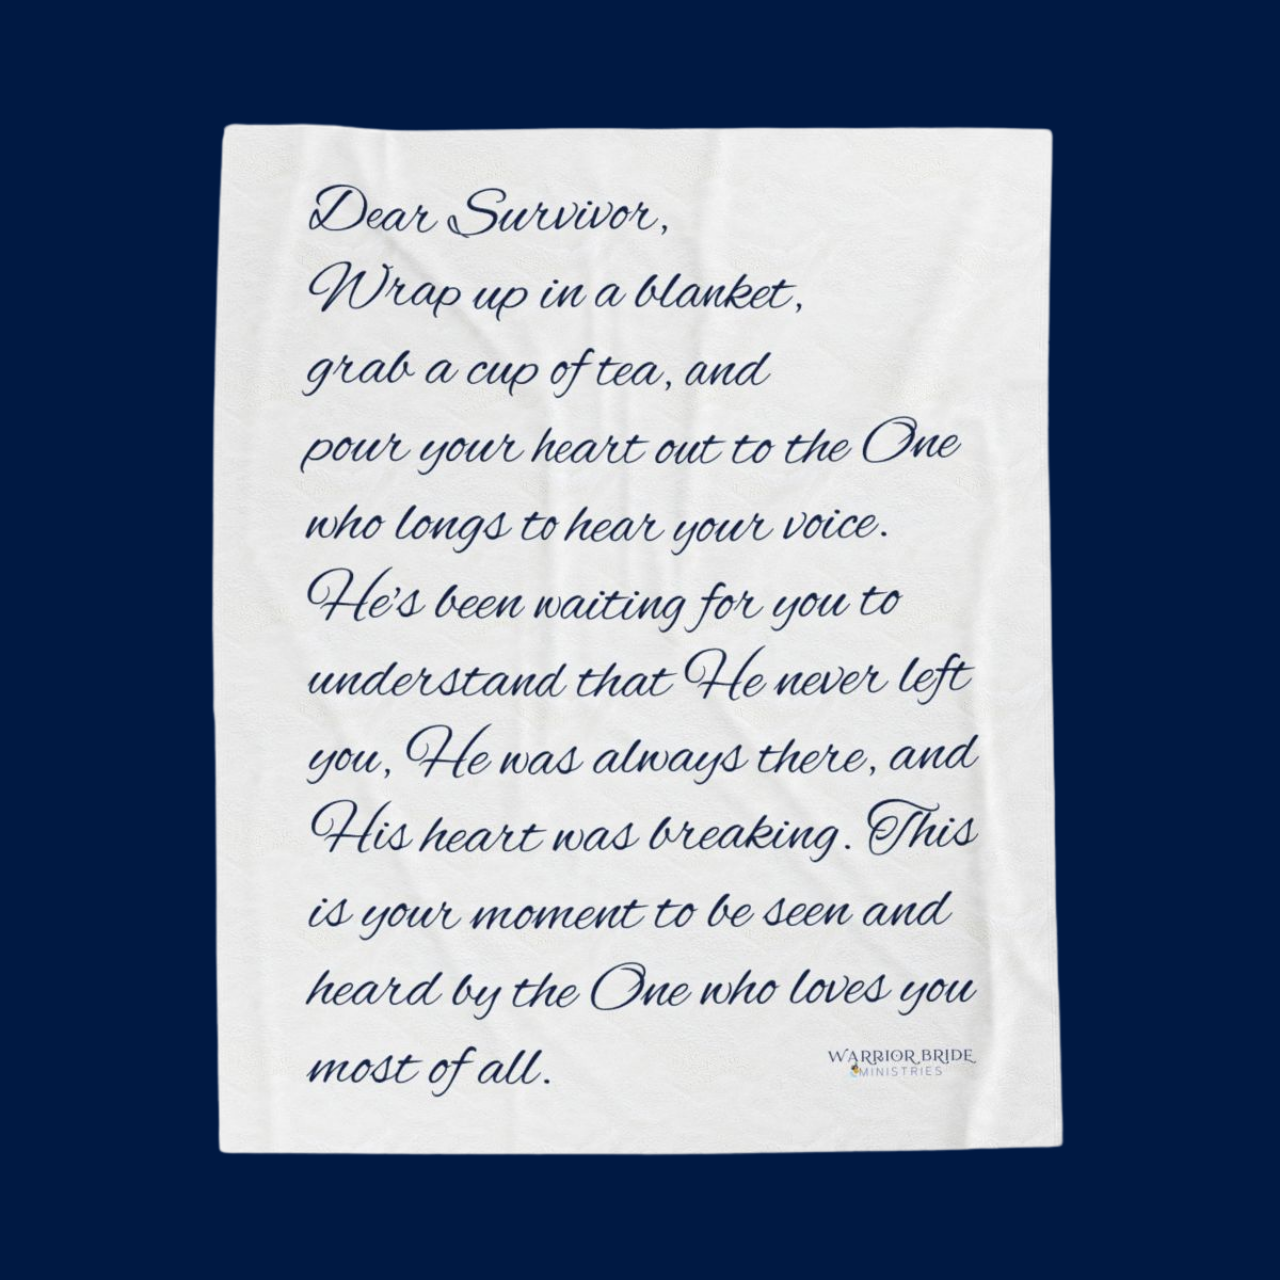 Dear Survivor,
Wrap up in a blanket,
grab a cup of tea, and
pour your heart out to the One
who longs to hear your voice.
He's been waiting for you to
understand that He never left
you, He was always there, and
His heart was breaking. This
is your moment to be seen and
heard by the One who loves you
most of all.
WARRIOR BRIDE
MINISTRIES